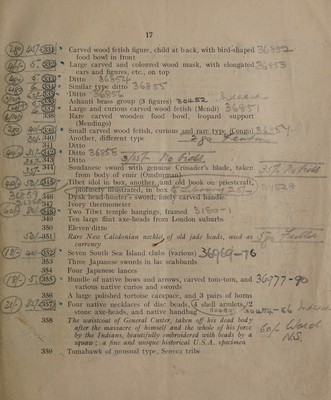 17
331 Carved wood fetish figure, child at back, with bird-shaped
food bowl in front
332 Large carved and coloured wood mask, with elongated
ears and figures, etc., on top
333 Ditto 36854
334 Similar type ditto 36855
335 Ditto 36856
Ashanti brass group (3 figures) 30452
Large and curious carved wood fetish (Mendi) 36851
338 Rare carved wooden food bowl, leopard support
(Mendingo)
Small carved wood fetish, curious and rare type (Congo)
340 Another, different type
341 Ditto
Ditto 36858
343 Ditto
344 Soudanese sword with genuine Crusader's blade, taken
from body of emir (Omdurman)
Tibet idol in box, another, and old book on priestcraft,
profusely illustrated, in box
346 Dyak head-hunter's sword, finely carved handle
Ivory thermometer
Two Tibet temple hangings, framed
349 Ten large flint axe-heads from London suburbs
350 Eleven ditto
351 Rare New Caledonian necklet of old jade beads, used as
currency
Seven South Sea Island clubs (various) 36969-76
353 Three Japanese swords in lac scabbards
354 Four Japanese lances
355 Bundle of native bows and arrows, carved tom-tom, and 36977-90
various native curios and swords
356 A large polished tortoise carapace, and 3 pairs of horns
357 Four native necklaces of disc beads, 4 shell armlets, 2
stone axe-heads, and native handbag
358 The waistcoat of General Custer, taken off his dead body
after the massacre of himself and the whole of his force
by the Indians, beautifully embroidered with beads by a
squaw ; a fine and unique historical U.S.A. specimen
359 Tomahawk of unusual type, Seneca tribe